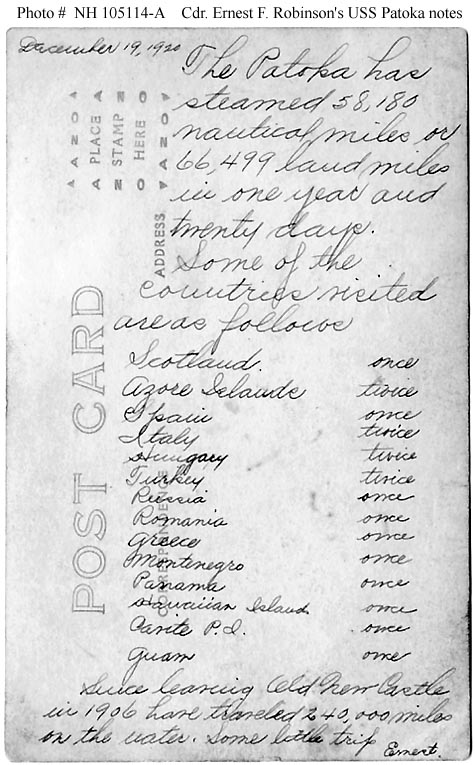 Photo # NH 105114-A Cdr. Ernest F. Robinson's USS Patoka notes
December 19, 1920
The Patoka has
steamed 58,180
nautical miles or
66,499 land miles
in one year and
twenty days.
Some of the
countries visited
are as follows
Scotland. once
Azore Islands twice
Spain once
Italy twice
Hungary twice
Turkey twice
Russia once
Romania once
Greece once
Montenegro once
Panama once
Hawaiian Island once
Cavite P.I. once
Guam once
Since leaving Old New Castle
in 1906 have traveled 240,000 miles
on the water. Some little trip
Ernest.
PLACE
STAMP
HERE
AZO
AZO
ADDRESS
POST CARD
CORRESPONDENCE